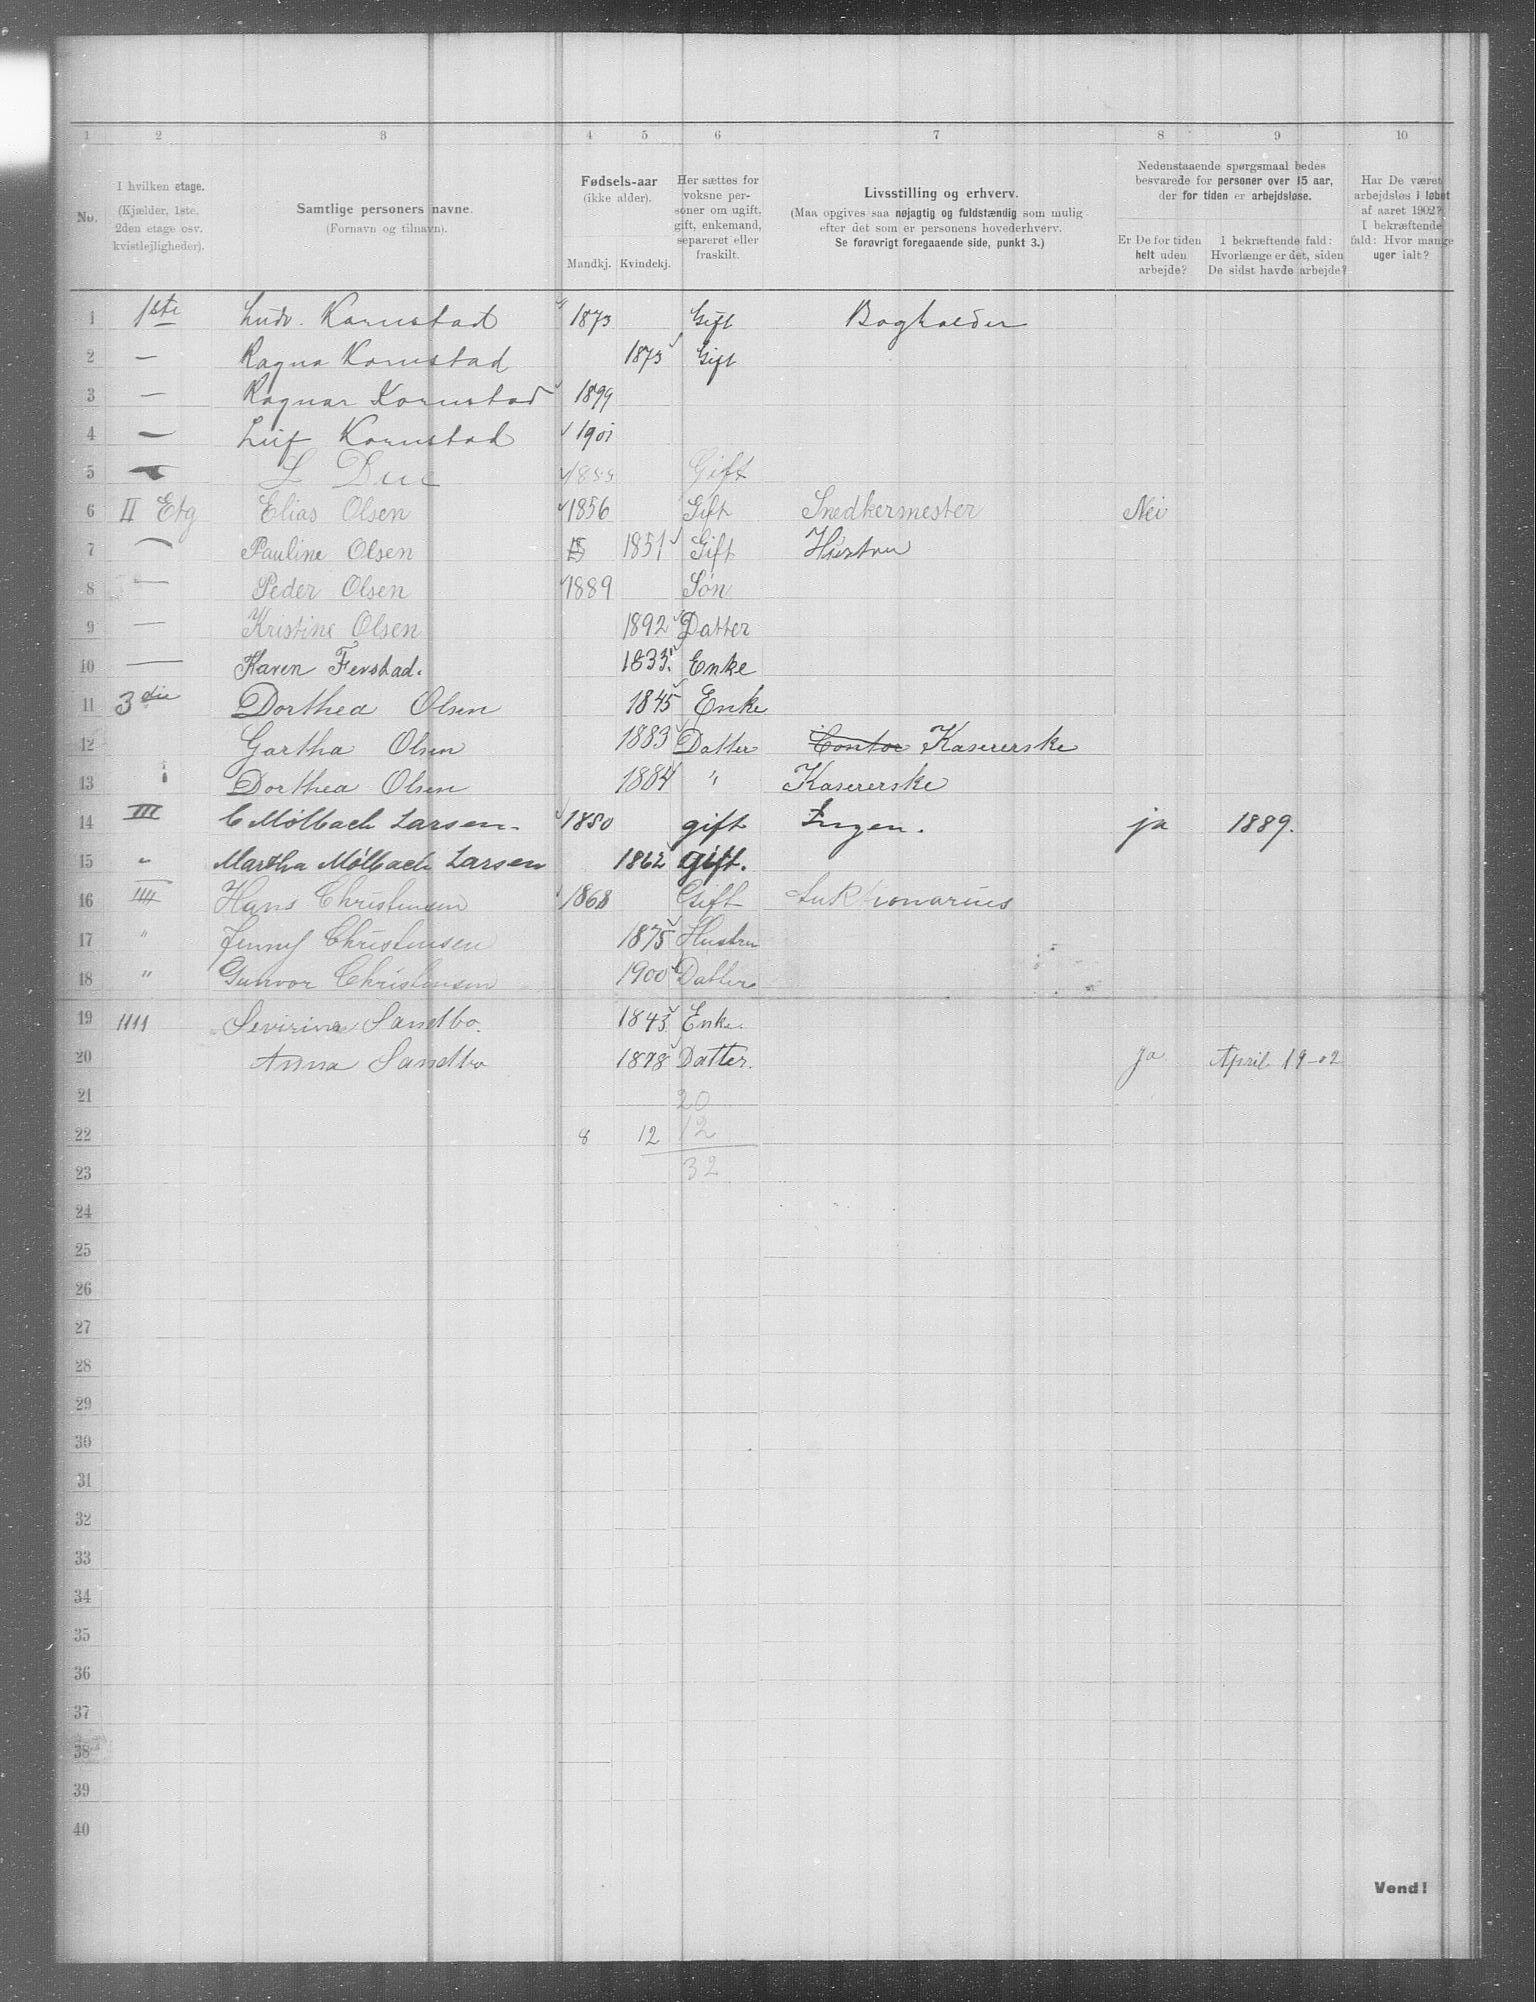 1 2 3 4 5 6 7 8 9 10
No.
I hvilken etage.
(Kjælder, 1ste,
2den etage osv.
kvistlejligheder).
Samtlige personers navne.
(Fornavn og tilnavn).
Fødsels-aar
(ikke alder).
Mandkj. Kvindekj.
Her sættes for
voksne per-
soner om ugift,
gift, enkemand,
separeret eller
fraskilt.
Livsstilling og erhverv.
(Maa opgives saa nøjagtig og fuldstændig som mulig
efter det som er personens hovederhverv.
Se forøvrigt foregaaende side, punkt 3.)
Nedenstaaende spørgsmaal bedes
besvarede for personer over 15 aar,
der for tiden er arbejdsløse.
Er De for tiden
helt uden
arbejde?
I bekræftende fald:
Hvorlænge er det, siden
De sidst havde arbejde?
Har De været
arbejdsløs i løbet
af aaret 1902?
I bekræftende
fald: Hvor mange
uger ialt?
1 1ste Ludv. Kornstad 1873 Gift Bogholder
2 — Ragna Kornstad 1873 Gift
3 — Ragnar Kornstad 1899
4 — Leif Kornstad 1901
5 L Due Gift
6 II Etg Elias Olsen 1856 Gift Snedkermester Nei
7 — Pauline Olsen 1851 Gift Hustru
8 — Peder Olsen 1889 Søn
9 — Kristine Olsen 1892 Datter
10 — Karen Fevstad. 1833. Enke
11 3die Dorthea Olsen 1845 Enke
12 Gartha Olsen 1883 Datter Contor Kasererske
13 Dorthea Olsen 1884 " Kasererske
14 III C Mølbach Larsen. 1850 gift Ingen. ja 1889.
15 " Martha Mølbach Larsen 1862 gift.
16 IIII Hans Christensen 1868 Gift Auktionarius
17 " Jenny Christensen 1875 Hustru
18 " Gunvor Christensen 1900 Datter
19 1111 Sevirine Sandbo. 1843. Enke.
20 Anna Sandbo 1878 Datter. ja April 19-02
21 20
22 8 12 12
23 32
24
25
26
27
28
29
30
31
32
33
34
35
36
37
38
39
40
Vend!